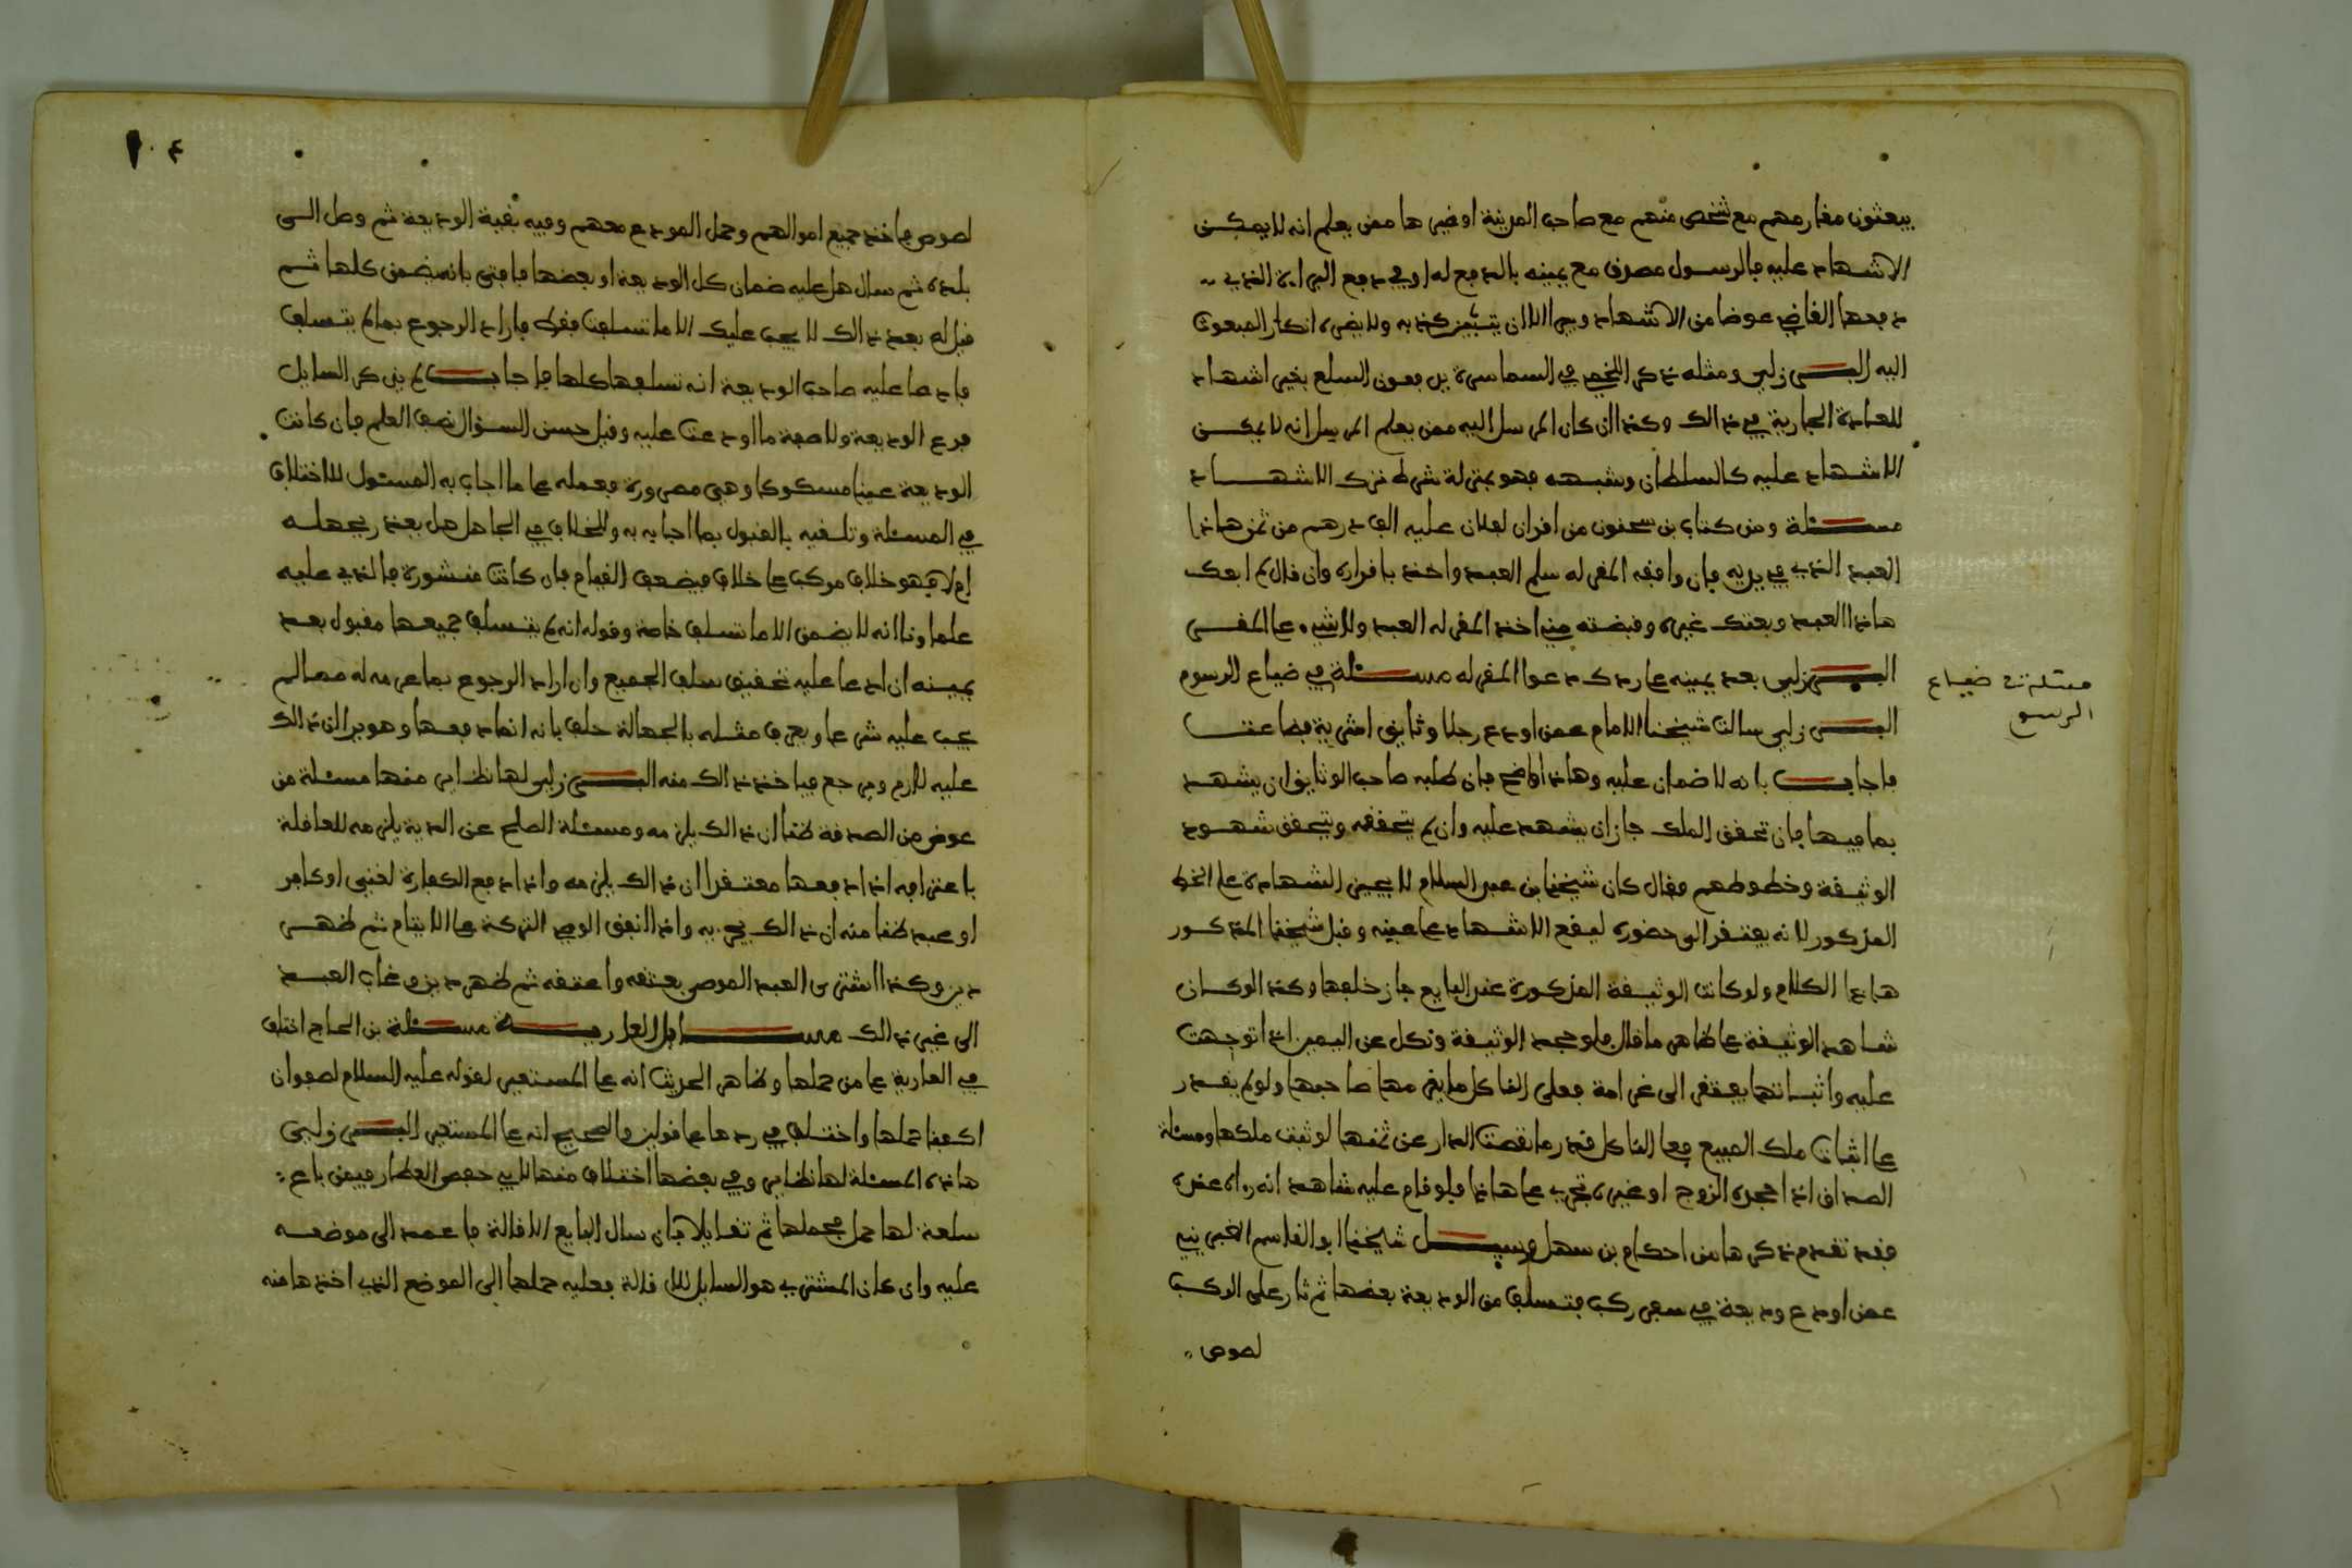 يبعثون مغارمهم مع شخص منهم مع صاحب المدينة او غيرها ممن يعلم انه لا يمكن
الاشهاد عليه فالرسول مصدق مع يمينه بالدفع له او في دفع الدراية الذي
دفعها القاضي عوضا من الاشهاد ويبرا الا ان يتبين كذبه ولا يضره انكار المبعوث
اليه البرزلي ومثله ذكر اللخمي في السماسرة يدفعون السلع بغير اشهاد
للعادة الجارية في ذالك وكذا ان كان المرسل اليه ممن يعلم المرسل انه لا يمكن
الاشهاد عليه كالسلطان وشبهه فهو بمنزلة شرط ترك الاشهاد
مسئلة ومن كتاب بن سحنون من اقران لفلان عليه الف درهم من ثمن هاذا
العبد الذي في يديه فان وافقه المقر له سلم العبد واخذ باقراره وان قال لم ابعك
هاذا العبد وبعتك غيره وقبضته مني اخذ المقر له العبد ولا شيء على المقر
البرزلي بعد يمينه على رد دعوا المقر له مسئلة في ضياع الرسوم
مسئلة في ضياع
الرسوم
البرزلي سالت شيخنا الامام عمن اودع رجلا وثايق اشرية فضاعت
فاجاب بانه لا ضمان عليه وهاذا واضح فان طلبه صاحب الوثايق ان يشهد
بما فيها فان تحقق الملك جاز ان يشهد عليه وان لم يتحققه ويتحقق شهود
الوثيقة وخطوطهم فقال كان شيخنا بن عبد السلام لا يجيز الشهادة على الخط
المذكور لانه يفتقر الى حضوره ليقع الاشهاد على عينه وقبل شيخنا المذكور
هاذا الكلام ولو كانت الوثيقة المذكورة عند البايع جاز خلفها وكذا لو كان
شاهد الوثيقة على ظاهر ما قال فلو جحد الوثيقة ونكل عن اليمين اذا توجهت
عليه واثباتها يفتقر الى غرامة فعلى الناكل ما يغرمها صاحبها ولو لم يقدر
على اثبات ملك المبيع فعلى الناكل قدر ما نقصت الدار عن ثمنها لو ثبت ملكها ومسئلة
الصداق اذا جحده الزوج او غيره تجري على هاذا فلو قام عليه شاهد انه رءاه عنده
فقد تقدم ذكرها من احكام بن سهل وسيل شيخنا ابو القاسم الغبريني
عمن اودع وديعة في سفر ركب فتسلف من الوديعة بعضها ثم ثار على الركب
لصوص
١٠٤
لصوص فاخذ جميع اموالهم وحمل المودع معهم وفيه بقية الوديعة ثم وصل الى
بلده ثم سال هل عليه ضمان كل الوديعة او بعضها فافتى بانه يضمن كلها ثم
قيل له بعد ذالك لا يجب عليك الا ما تسلفت فقط فاراد الرجوع بما لم يتسلف
فادعا عليه صاحب الوديعة انه تسلفها كلها فاجاب لم يذكر السايل
فرع الوديعة ولا صفة ما اودعت عليه وقيل حسن السؤال نصف العلم فان كانت
الوديعة عينا مسكوكا وهي مصرورة فعمله على ما اجاب به المسئول للاختلاف
في المسئلة وتلقيه بالقبول بما اجابه به والخلاف في الجاهل هل يعذر بجهله
ام لا فهو خلاف مركب على خلاف فيضعف القيام فان كانت منشورة فالذي عليه
علماونا انه لا يضمن الا ما تسلف خاصة وقوله انه لم يتسلف جميعها مقبول بعد
يمينه ان ادعا عليه تحقيق سلف الجميع وان اراد الرجوع بما غرمه له مما لم
يجب عليه شرعا ويعرف مثله بالجهالة حلف بانه انما دفعها وهو يرا ان ذالك
عليه لازم ويرجع فياخذ ذالك منه البرزلي لها نظاير منها مسئلة من
عوض من الصدقة ظنا ان ذالك يلزمه ومسئلة الصلح عن الدية يلزمه للعاقلة
باعترافه اذا دفعها معتقدا ان ذالك يلزمه واذا دفع الكفارة لغني او كافر
او عبد ظنا منه ان ذالك يجزيه واذا انفق الوصي التركة على الايتام ثم ظهر
دين وكذا اشترى العبد الموصى بعتقه واعتقه ثم ظهر دين وغاب العبد
الى غير ذالك مسايل العارية مسئلة بن الحاج اختلف
في العارية على من حملها وظاهر الحديث انه على المستعير لقوله عليه السلام لصفوان
اكفنا حملها واختلف في ردها على قولين والصحيح انه على المستعير البرزلي
هاذه المسئلة لها نظاير وفي بعضها اختلاف منها لابي حفص العطار فيمن باع
سلعة لها حمل فحملها ثم تقايلا فان سال البايع الاقالة فاعمد الى موضعه
عليه وان كان المشتري هو السايل للاقالة فعليه حملها الى الموضع الذي اخذها منه